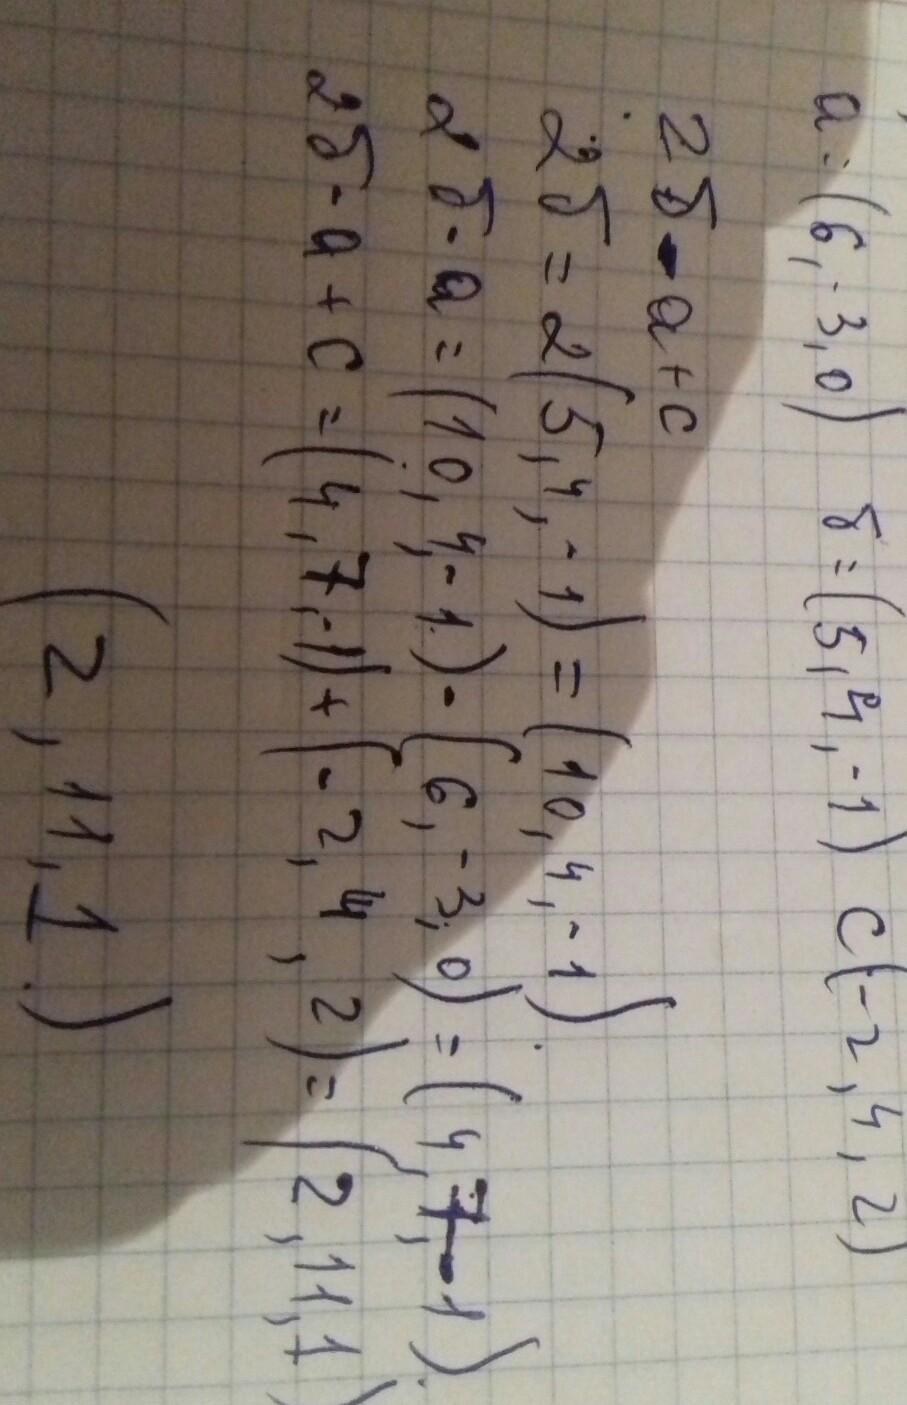 a=(6,-3,0) б=(5,4,-1) c(-2,4,2)
2б-a+c
2б=2(5,4,-1)=(10,4,-1)
2б-a=(10,4,-1)-(6,-3,0)=(4,7,-1)
2б-a+c=(4,7,-1)+(-2,4,2)=(2,11,1)
(2,11,1)